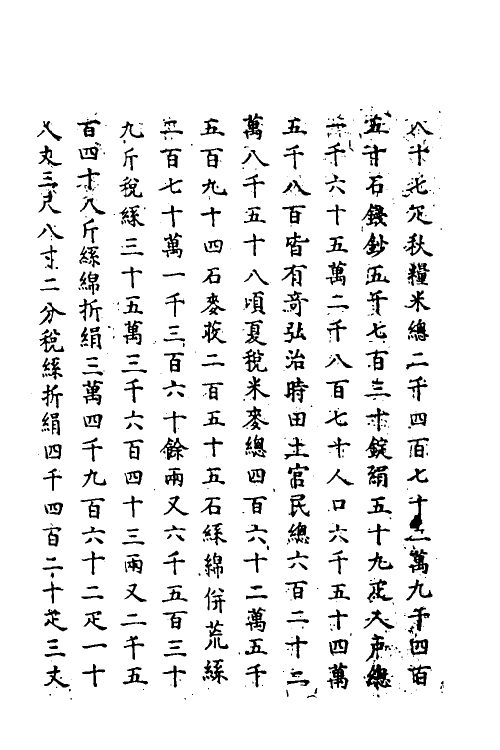 八十七疋秋糧米總二千四百七十二萬九千四百
五十石錢鈔五千七百三十錠絹五十九疋人戶總
一千六十五萬二千八百七十人口六千五十四萬
五千八百皆有竒弘治時田土官民總六百二十二
萬八千五十八頃夏稅米麥總四百六十二萬五千
五百九十四石麥荍二百五十五石絲綿併荒絲
二百七十萬一千三百六十餘兩又六千五百三十
九斤稅絲三十五萬三千六百四十三兩又二千五
百四十八斤絲綿折絹三萬四千九百六十二疋一十
八丈三尺八寸二分稅絲折絹四千四百二十疋三丈